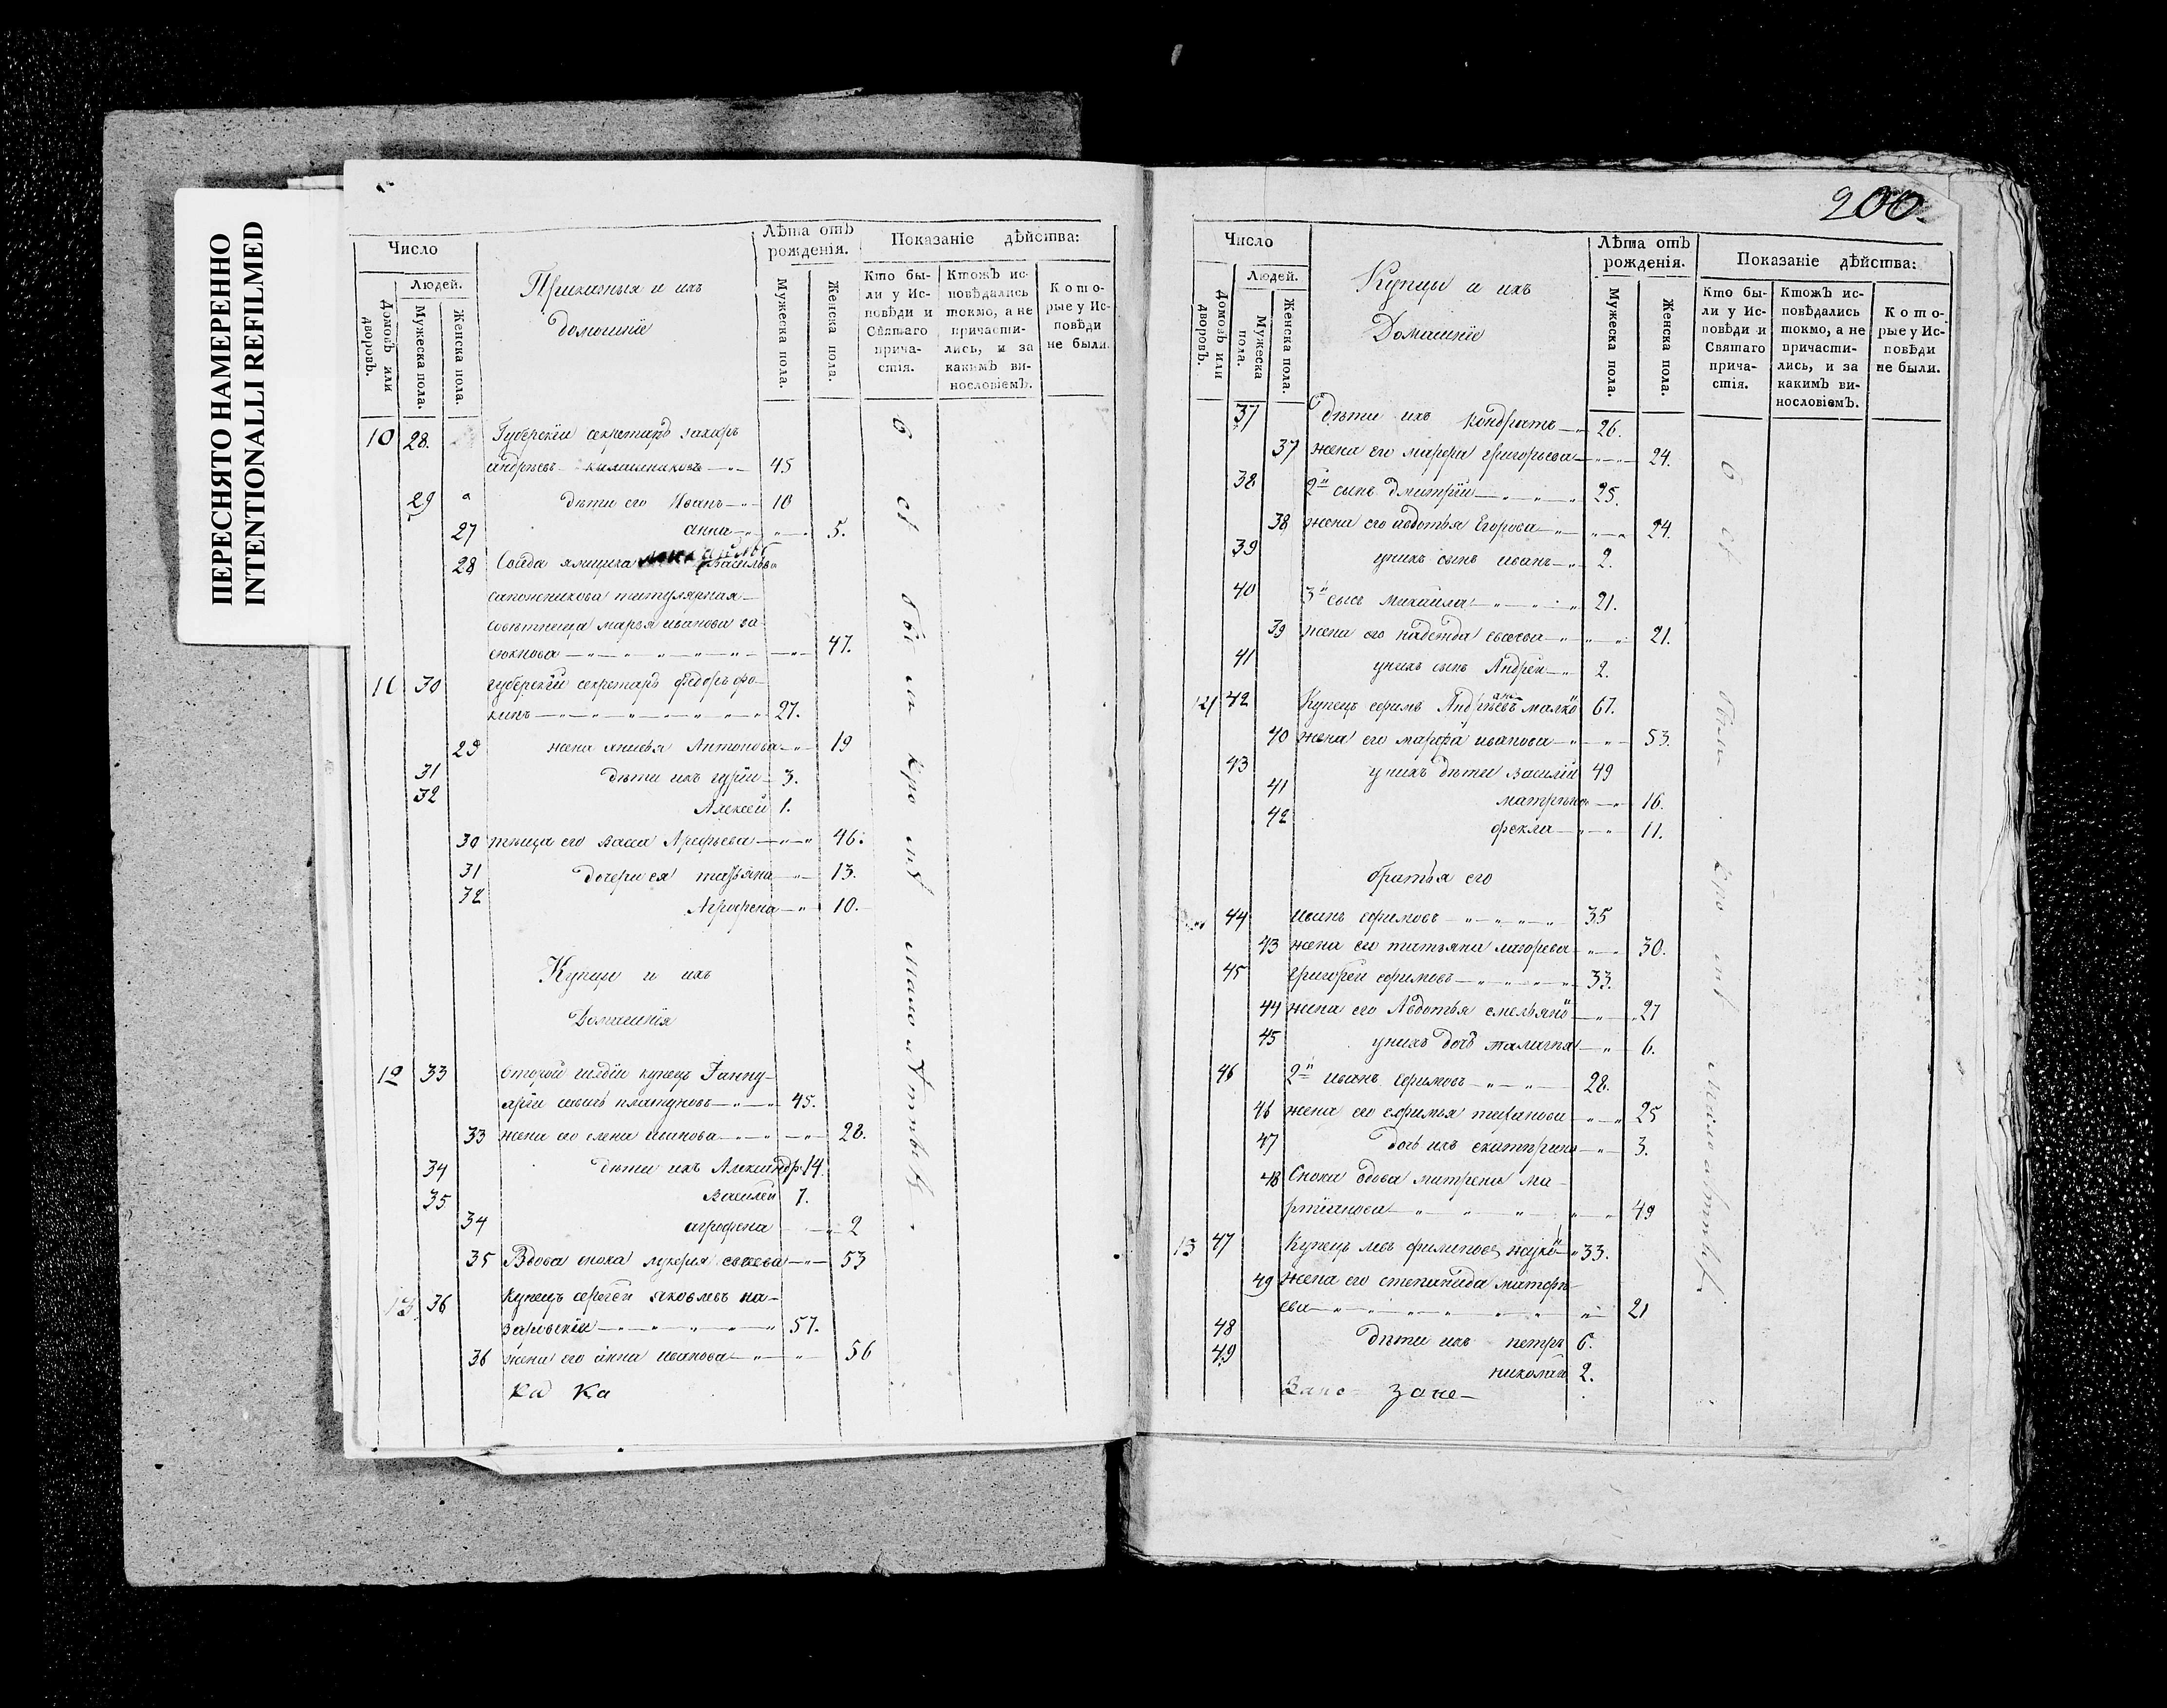 ПЕРЕСНЯТО НАМЕРЕННО
INTENTIONALLI REFILMED
Число
Людей.
Домовъ или дворовъ.
Мужеска пола.
Женска пола.
Приказныя и ихъ
домошніе
Лѣта отъ рожденія.
Мужеска пола.
Женска пола.
Показаніе дѣйства:
Кто были у Исповѣди и Святаго причастія.
Ктожъ исповѣдались токмо, а не причастились, и за какимъ винословіемъ.
Которые у Исповѣди не были.
10 28. Губерскіи секретарь захаръ
андреевъ 45
29 дѣти его Иванъ 10
27 анна 5.
28 Василева
сапожникова титулярная
совѣтница марья иванова
47.
11 30 губерскіи секретарь федоръ фо-
кинъ 27.
29 жена Антонова 19
31 дѣти ихъ гурій 3.
32 Алексей 1.
30 тѣща его васса Арефьева 46.
31 дочери ея татьяна 13.
32 Агрофена 10.
Купцы и ихъ
Домашнія
12 33 второй гилдіи купецъ Ганну-
арій савичъ платуновъ 45.
33 жена его елена иванова 28.
34 дѣти ихъ Александръ 14.
35 Василей 7.
34 агрофена 2
35 Вдова сноха лукерия 53
13 36 Купецъ сергей яковлевъ на-
заровскіи 57.
36 жена его анна иванова 56
Ка Ка
всѣ были кромѣ малолѣтныхъ.
200.
Число
Людей.
Домовъ или дворовъ.
Мужеска пола.
Женска пола.
Купцы и ихъ
Домашніе
Лѣта отъ рожденія.
Мужеска пола.
Женска пола.
Показаніе дѣйства:
Кто были у Исповѣди и Святаго причастія.
Ктожъ исповѣдались токмо, а не причастились, и за какимъ винословіемъ.
Которые у Исповѣди не были.
37 дѣти ихъ кондратъ 26.
37 жена его марфа григорьева 24.
38 2й сынъ дмитрій 25.
38 жена его авдотья Егорова 24.
39 у нихъ сынъ иванъ 2.
40 3й сынъ михаила 21.
39 жена его надежда 21.
41 у нихъ сынъ Андрей 2.
14 42 Купецъ ефимъ Андреевъ малко 67.
40 жена его марфа иванова 53.
43 у нихъ дѣти василій 49
41 матрена 16.
42 фекла 11.
братья его
44 иванъ ефимовъ 35
43 жена его татьяна 30.
45 григорей ефимовъ 33.
44 жена его Авдотья емельяно 27
45 у нихъ дочь 6.
46 2й иванъ ефимовъ 28.
46 жена его ефимья 25
47 дочь ихъ екатерина 3.
48 Сноха вдова матрена ма-
ртіанова 49
15 47 Купецъ левъ филиповъ жуко 33.
49 жена его степанида матфе-
ева 21
48 дѣти ихъ петръ 6.
49 николай 2.
заче-
всѣ были кромѣ малолѣтныхъ.